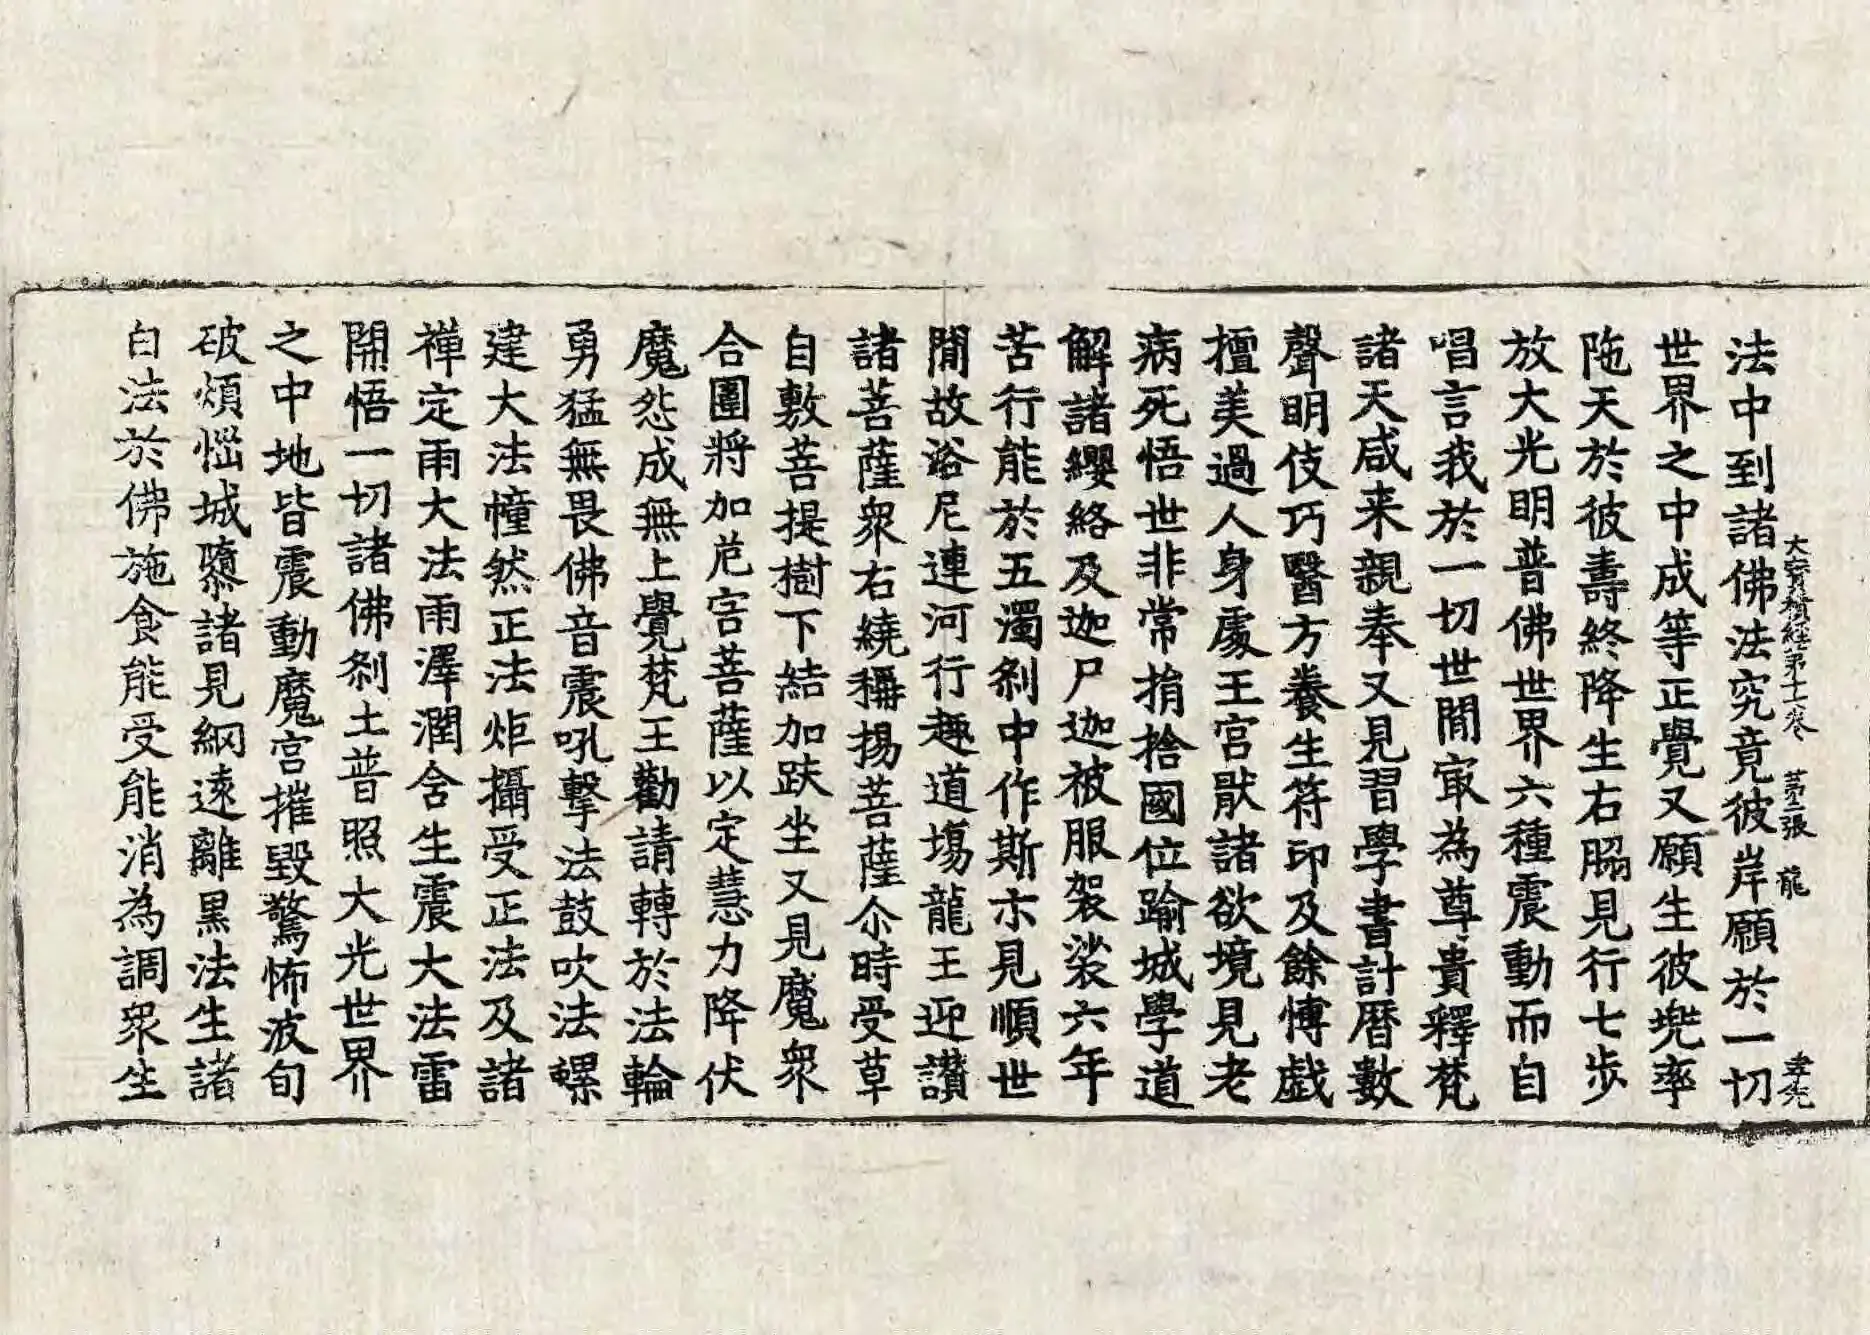 大寶積經第十七卷 第二張 龍
法中到諸佛法究竟彼岸願於一切
世界之中成等正覺又願生彼兠率
陁天於彼壽終降生右脇見行七步
放大光明普佛世界六種震動而自
唱言我於一切世間㝡為尊貴釋梵
諸天咸来親奉又見習學書計曆數
聲明伎巧醫方養生符印及餘愽戯
擅美過人身處王宮猒諸欲境見老
病死悟世非常捐捨國位踰城學道
解諸纓絡及迦尸迦被服袈裟六年
苦行能於五濁剎中作斯示見順世
閒故浴尼連河行趣道場龍王迎讃
諸菩薩衆右繞稱揚菩薩尒時受草
自敷菩提樹下結加趺坐又見魔衆
合圍將加危害菩薩以定慧力降伏
魔怨成無上覺梵王勸請轉於法輪
勇猛無畏佛音震吼擊法鼓吹法螺
建大法幢然正法炬攝受正法及諸
禪定雨大法雨澤潤含生震大法雷
開悟一切諸佛剎土普照大光世界
之中地皆震動魔宮摧毀驚怖波旬
破煩惱城墮諸見網逺離黒法生諸
白法於佛施食能受能消為調衆生